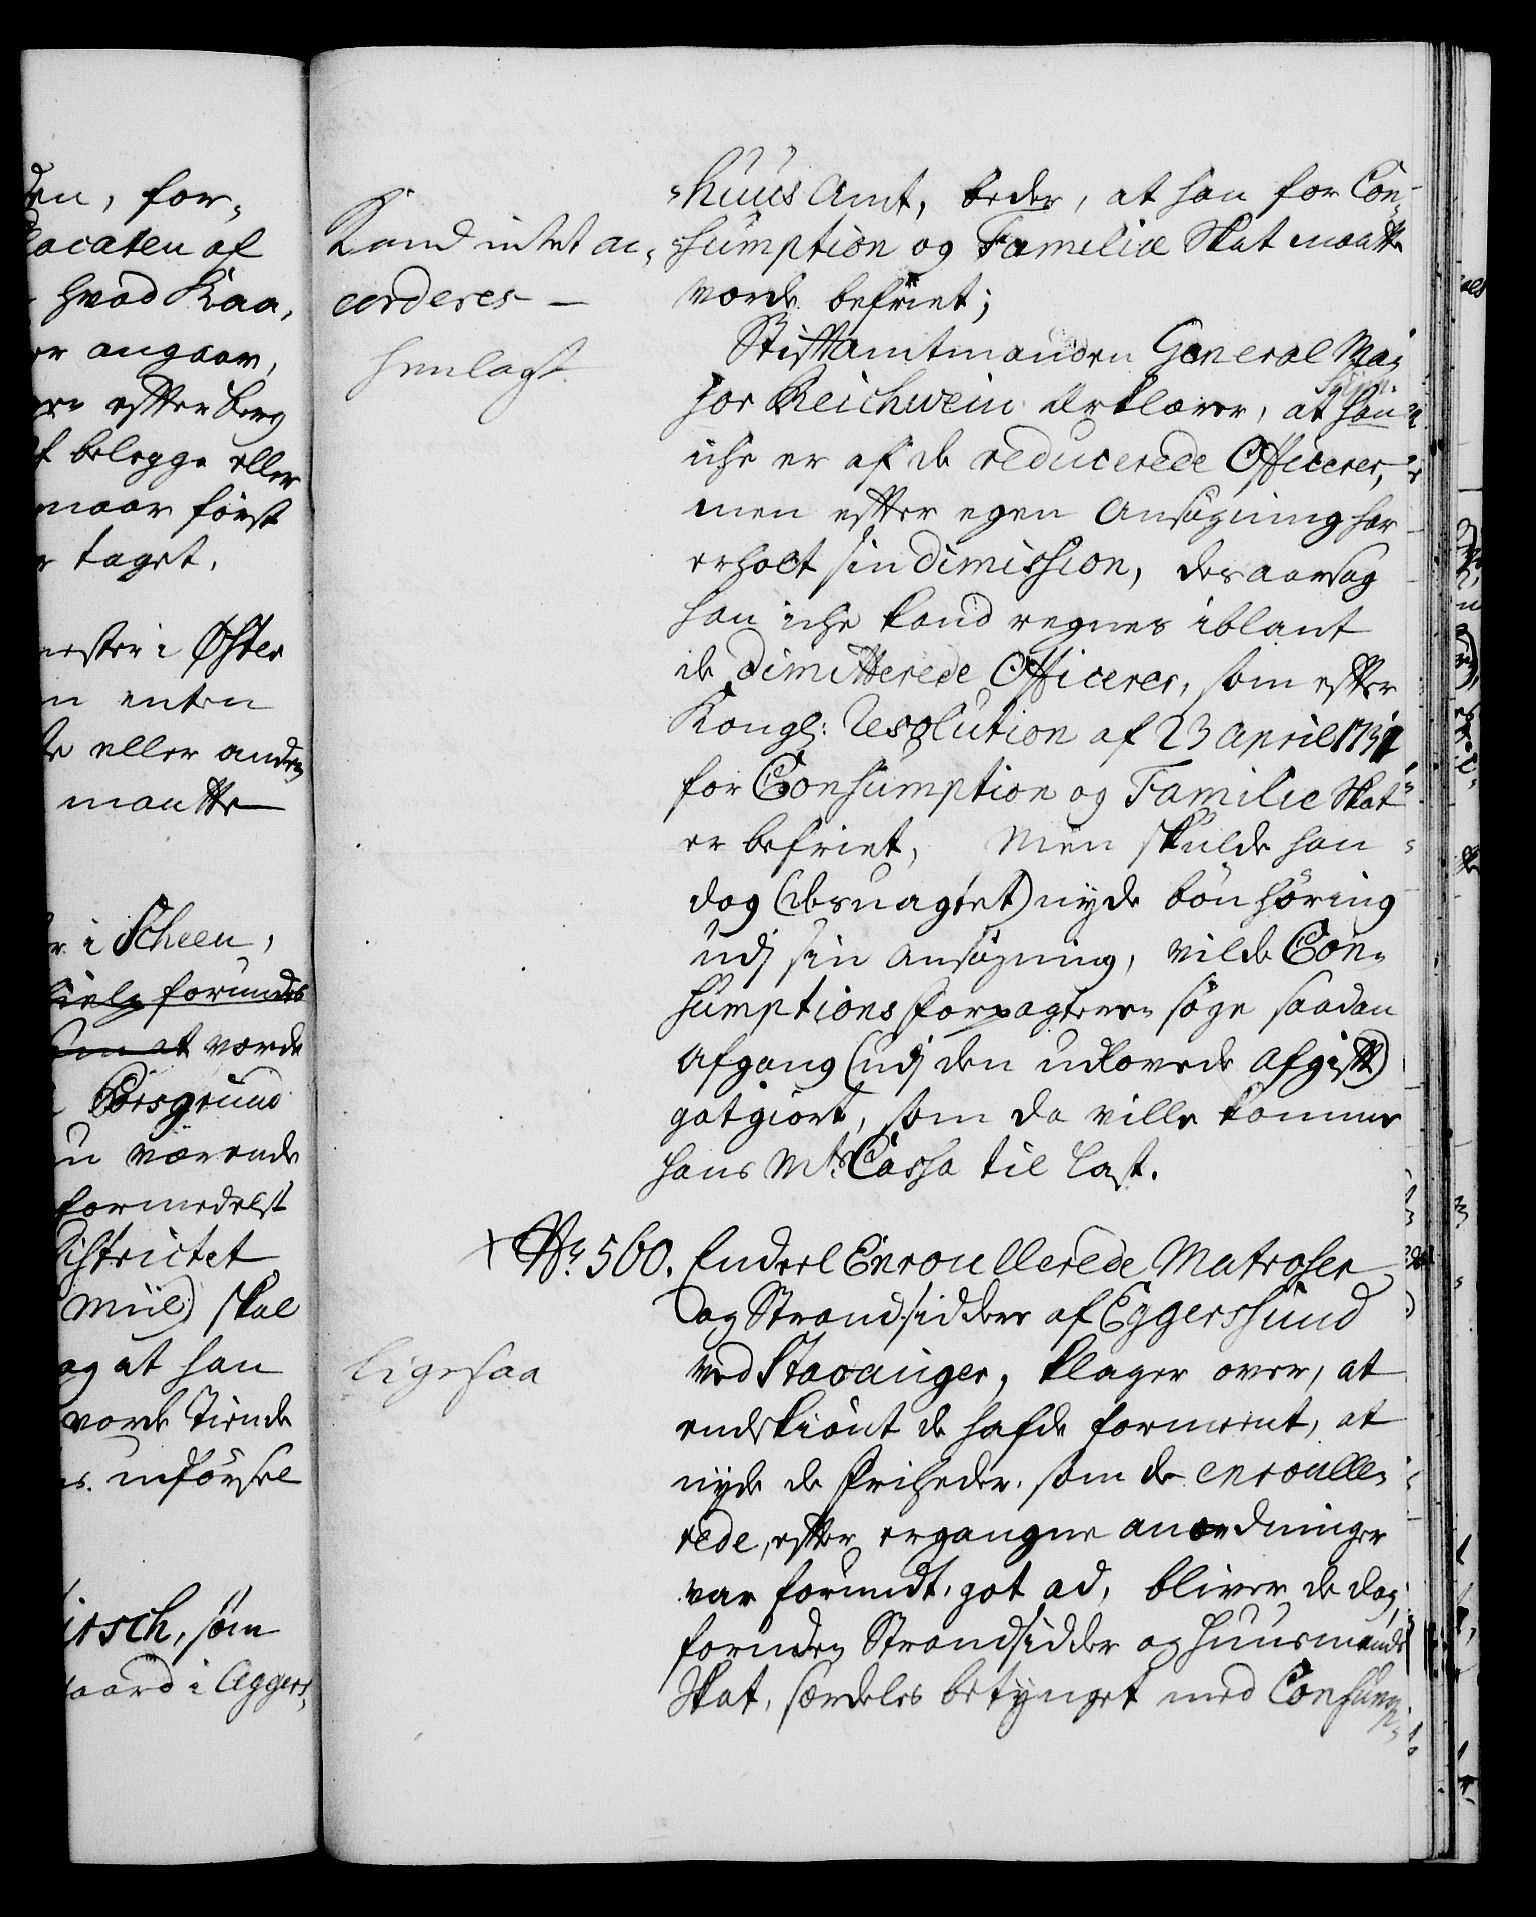 den, for-
Placaten af
hvad Kaa,
er angaar,
efter berg
at belegge eller
maar först
taget.
mester i Öster
enten
eller anden
maatte
i Scheen,
forundes
at vorde
Porsgrund
nu værende
formedelst
Districtet
Miil) skal
og at han
vorde Tiende
indförsel
irsch, som
gaard i Aggers,
Kand intet ac,
corderes —
henlagt.
-huus Amt, beder, at han for Con,
sumption og Familie Skat maatte
vorde befriet;
Stiftamtmanden General Ma,
jor Reichwein erklærer, at han
iche er af de reducerede Officerer,
men efter egen Ansøgning har
erholt sin dimission, des aarsag
han iche kand regnes iblant
de dimitterede Officerer, som efter
Kongl: Resolution af 23 April
for Consumption og Familie Skat
er befriet, Men skulde han
dog (desuagtet) nyde bönhöring
udj sin ansøgning, vilde Con,
sumptions forpagteren söge saadan
Afgang (udj den udlovede afgift)
gotgiort, som da ville komme
hans Mts Cassa til last.
× No 560. Endeel Enroullerede Matroser
og Strandsiddere af Eggersund
ved Stavanger, klager over, at
endskiönt de hafde formeent, at
nyde de friheder, som de enroulle,
rede, efter ergangne anordninger
var forundt, got ad, bliver de dog,
foruden Strandsidder og Huusmands
Skat, særdeles betynget med Consump,
ligesaa